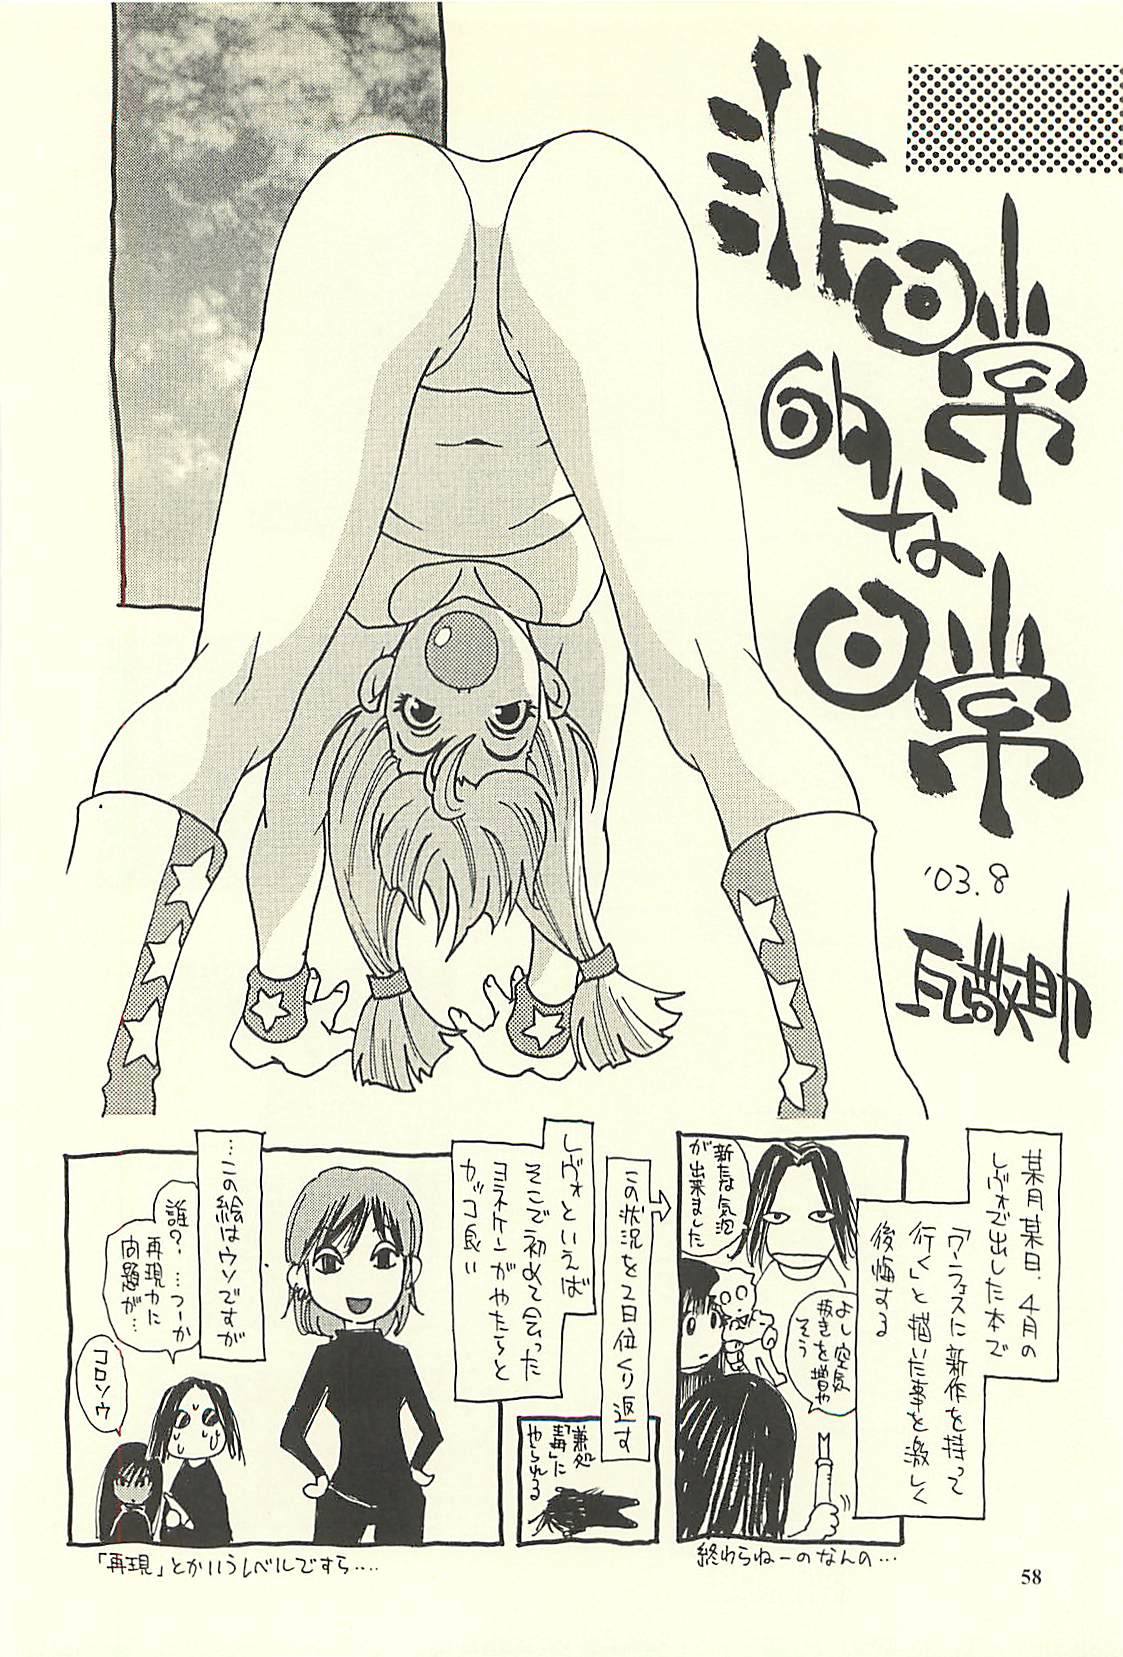 非日常
的な
日常
'03.8
某月某日、4月の
レヴォで出した本で
「ワンフェスに新作を持って
行く」と描いた事を激しく
後悔する
新たな気泡
が出来ました
よし空気
抜きを増や
そう
終わらねーのなんの…
この状況を2日位くり返す
兼処
「毒」に
やられる
レヴォといえば
そこで初めて会った
ヨネケンがやたらと
カッコ良い
…この絵はウソですが
誰?…つーか
再現力に
問題が…
コロソウ
「再現」とかいうレベルですら….
58